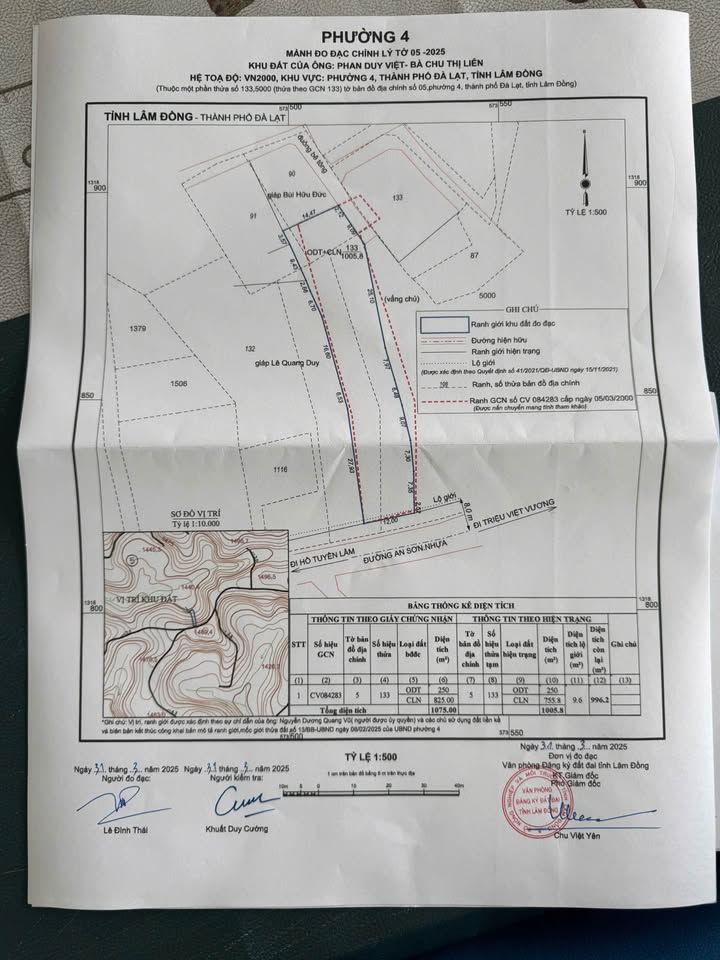 PHƯỜNG 4
MẢNH ĐO ĐẠC CHỈNH LÝ TỜ 05 -2025
KHU ĐẤT CỦA ÔNG: PHAN DUY VIỆT- BÀ CHU THỊ LIÊN
HỆ TOẠ ĐỘ: VN2000, KHU VỰC: PHƯỜNG 4, THÀNH PHỐ ĐÀ LẠT, TỈNH LÂM ĐỒNG
(Thuộc một phần thửa số 133,5000 (thửa theo GCN 133) tờ bản đồ địa chính số 05,phường 4, thành phố Đà Lạt, tỉnh Lâm Đồng)
573 500
573 550
TỈNH LÂM ĐỒNG - THÀNH PHỐ ĐÀ LẠT
1318 900
1318 900
đường bê tông
90
giáp Bùi Hữu Đức
133
TỶ LỆ 1:500
91
14,47
ODT+CLN 133 1005,8
87
5000
25,10
(vắng chủ)
1379
132
giáp Lê Quang Duy
1506
1116
GHI CHÚ
Ranh giới khu đất đo đạc
Đường hiện hữu
Ranh giới hiện trạng
Lộ giới
(Được xác định theo Quyết định số 41/2021/QĐ-UBND ngày 15/11/2021)
198 Ranh, số thửa bản đồ địa chính
Ranh GCN số CV 084283 cấp ngày 05/03/2000
(Được nắn chuyển mang tính tham khảo)
850
850
16,60
6,93
27,93
7,97
9,07
7,30
7,35
12,00
Lộ giới
8,0 m
ĐI TRIỆU VIỆT VƯƠNG
ĐI HỒ TUYỀN LÂM
ĐƯỜNG AN SƠN,NHỰA
SƠ ĐỒ VỊ TRÍ
Tỷ lệ 1:10.000
VỊ TRÍ KHU ĐẤT
1318 800
1318 800
BẢNG THỐNG KÊ DIỆN TÍCH
THÔNG TIN THEO GIẤY CHỨNG NHẬN THÔNG TIN THEO HIỆN TRẠNG
STT Số hiệu GCN Tờ bản đồ địa chính Số hiệu thửa Loại đất bđđc Diện tích (m²) Tờ bản đồ địa chính Số hiệu thửa tạm Loại đất hiện trạng Diện tích (m²) Diện tích lộ giới (m²) Diện tích còn lại (m²) Ghi chú
(1) (2) (3) (4) (5) (6) (7) (8) (9) (10) (11) (12) (13)
1 CV084283 5 133 ODT 250 5 133 ODT 250 9.6 996.2
CLN 825.00 CLN 755.8
Tổng diện tích 1075.00 1005.8
*Ghi chú: Vị trí, ranh giới được xác định theo sự chỉ dẫn của ông: Nguyễn Dương Quang Vũ( người được ủy quyền) và các chủ sử dụng đất liền kề
và biên bản kết thúc công khai bản mô tả ranh giới,mốc giới thửa đất số 13/BB-UBND ngày 06/02/2025 của UBND phường 4
573 500
550
TỶ LỆ 1:500
1 cm trên bản đồ bằng 5 m trên thực địa
10m 5 0 10 20 30 40m
Ngày 31 tháng 3 năm 2025
Người đo đạc:
Lê Đình Thái
Ngày 31 tháng 3 năm 2025
Người kiểm tra:
Khuất Duy Cường
Ngày 31 tháng 3 năm 2025
Đơn vị đo đạc
Văn phòng Đăng ký đất đai tỉnh Lâm Đồng
KT.Giám đốc
Phó Giám đốc
VĂN PHÒNG
ĐĂNG KÝ ĐẤT ĐAI
TỈNH LÂM ĐỒNG
Chu Việt Yên